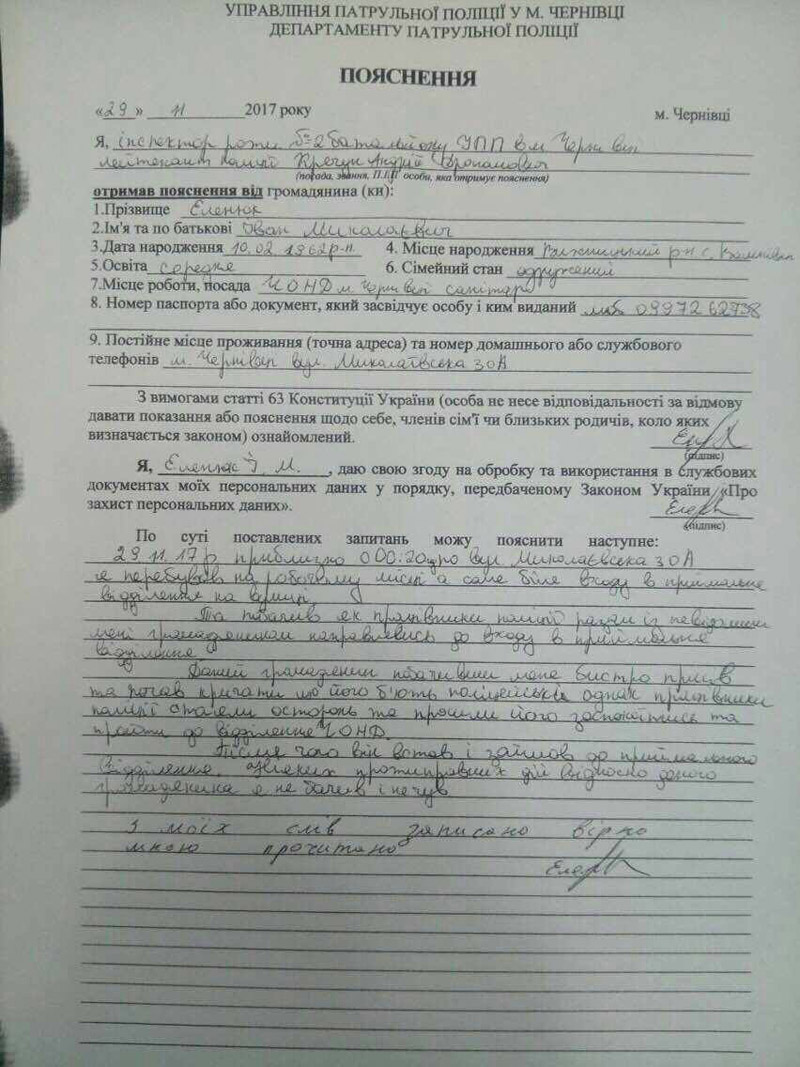 УПРАВЛІННЯ ПАТРУЛЬНОЇ ПОЛІЦІЇ У М. ЧЕРНІВЦІ
ДЕПАРТАМЕНТУ ПАТРУЛЬНОЇ ПОЛІЦІЇ
ПОЯСНЕННЯ
«29» 11 2017 року м. Чернівці
Я, інспектор роти №2 батальйону УПП в м. Чернівці
лейтенант поліції Андрій
(посада, звання, П.І.П особи, яка отримує пояснення)
отримав пояснення від громадянина (ки):
1.Прізвище Еленюк
2.Ім'я та по батькові Іван Миколаєвич
3.Дата народження 10.02.1962р-н. 4. Місце народження р-н с.
5.Освіта середнє 6. Сімейний стан одружений
7.Місце роботи, посада ЧОНД м. Чернівці санітар
8. Номер паспорта або документ, який засвідчує особу і ким виданий 0997262738
9. Постійне місце проживання (точна адреса) та номер домашнього або службового
телефонів м. Чернівці вул. Миколаївська 30А
З вимогами статті 63 Конституції України (особа не несе відповідальності за відмову
давати показання або пояснення щодо себе, членів сім'ї чи близьких родичів, коло яких
визначається законом) ознайомлений.
(підпис)
Я, Еленюк І. М. , даю свою згоду на обробку та використання в службових
документах моїх персональних даних у порядку, передбаченому Законом України «Про
захист персональних даних».
(підпис)
По суті поставлених запитань можу пояснити наступне:
29.11.17р приблизно о 00:20 по вул. Миколаєвська 30А
я перебував на робочому місці а саме біля входу в приймальне
відділення на вулиці
Та побачив як працівники поліції разом із невідомим
мені громадянином направлялись до входу в приймальне
відділення
Даний громадянин побачивши мене бистро присів
та почав кричати що його б'ють поліцейські однак працівники
поліції стояли осторонь та просили його заспокоїтись та
пройти до відділення ЧОНД.
Після чого він встав і зайшов до приймального
відділення. протиправних дій відносно даного
громадянина я не бачив і не чув
З моїх слів записано вірно
мною прочитано